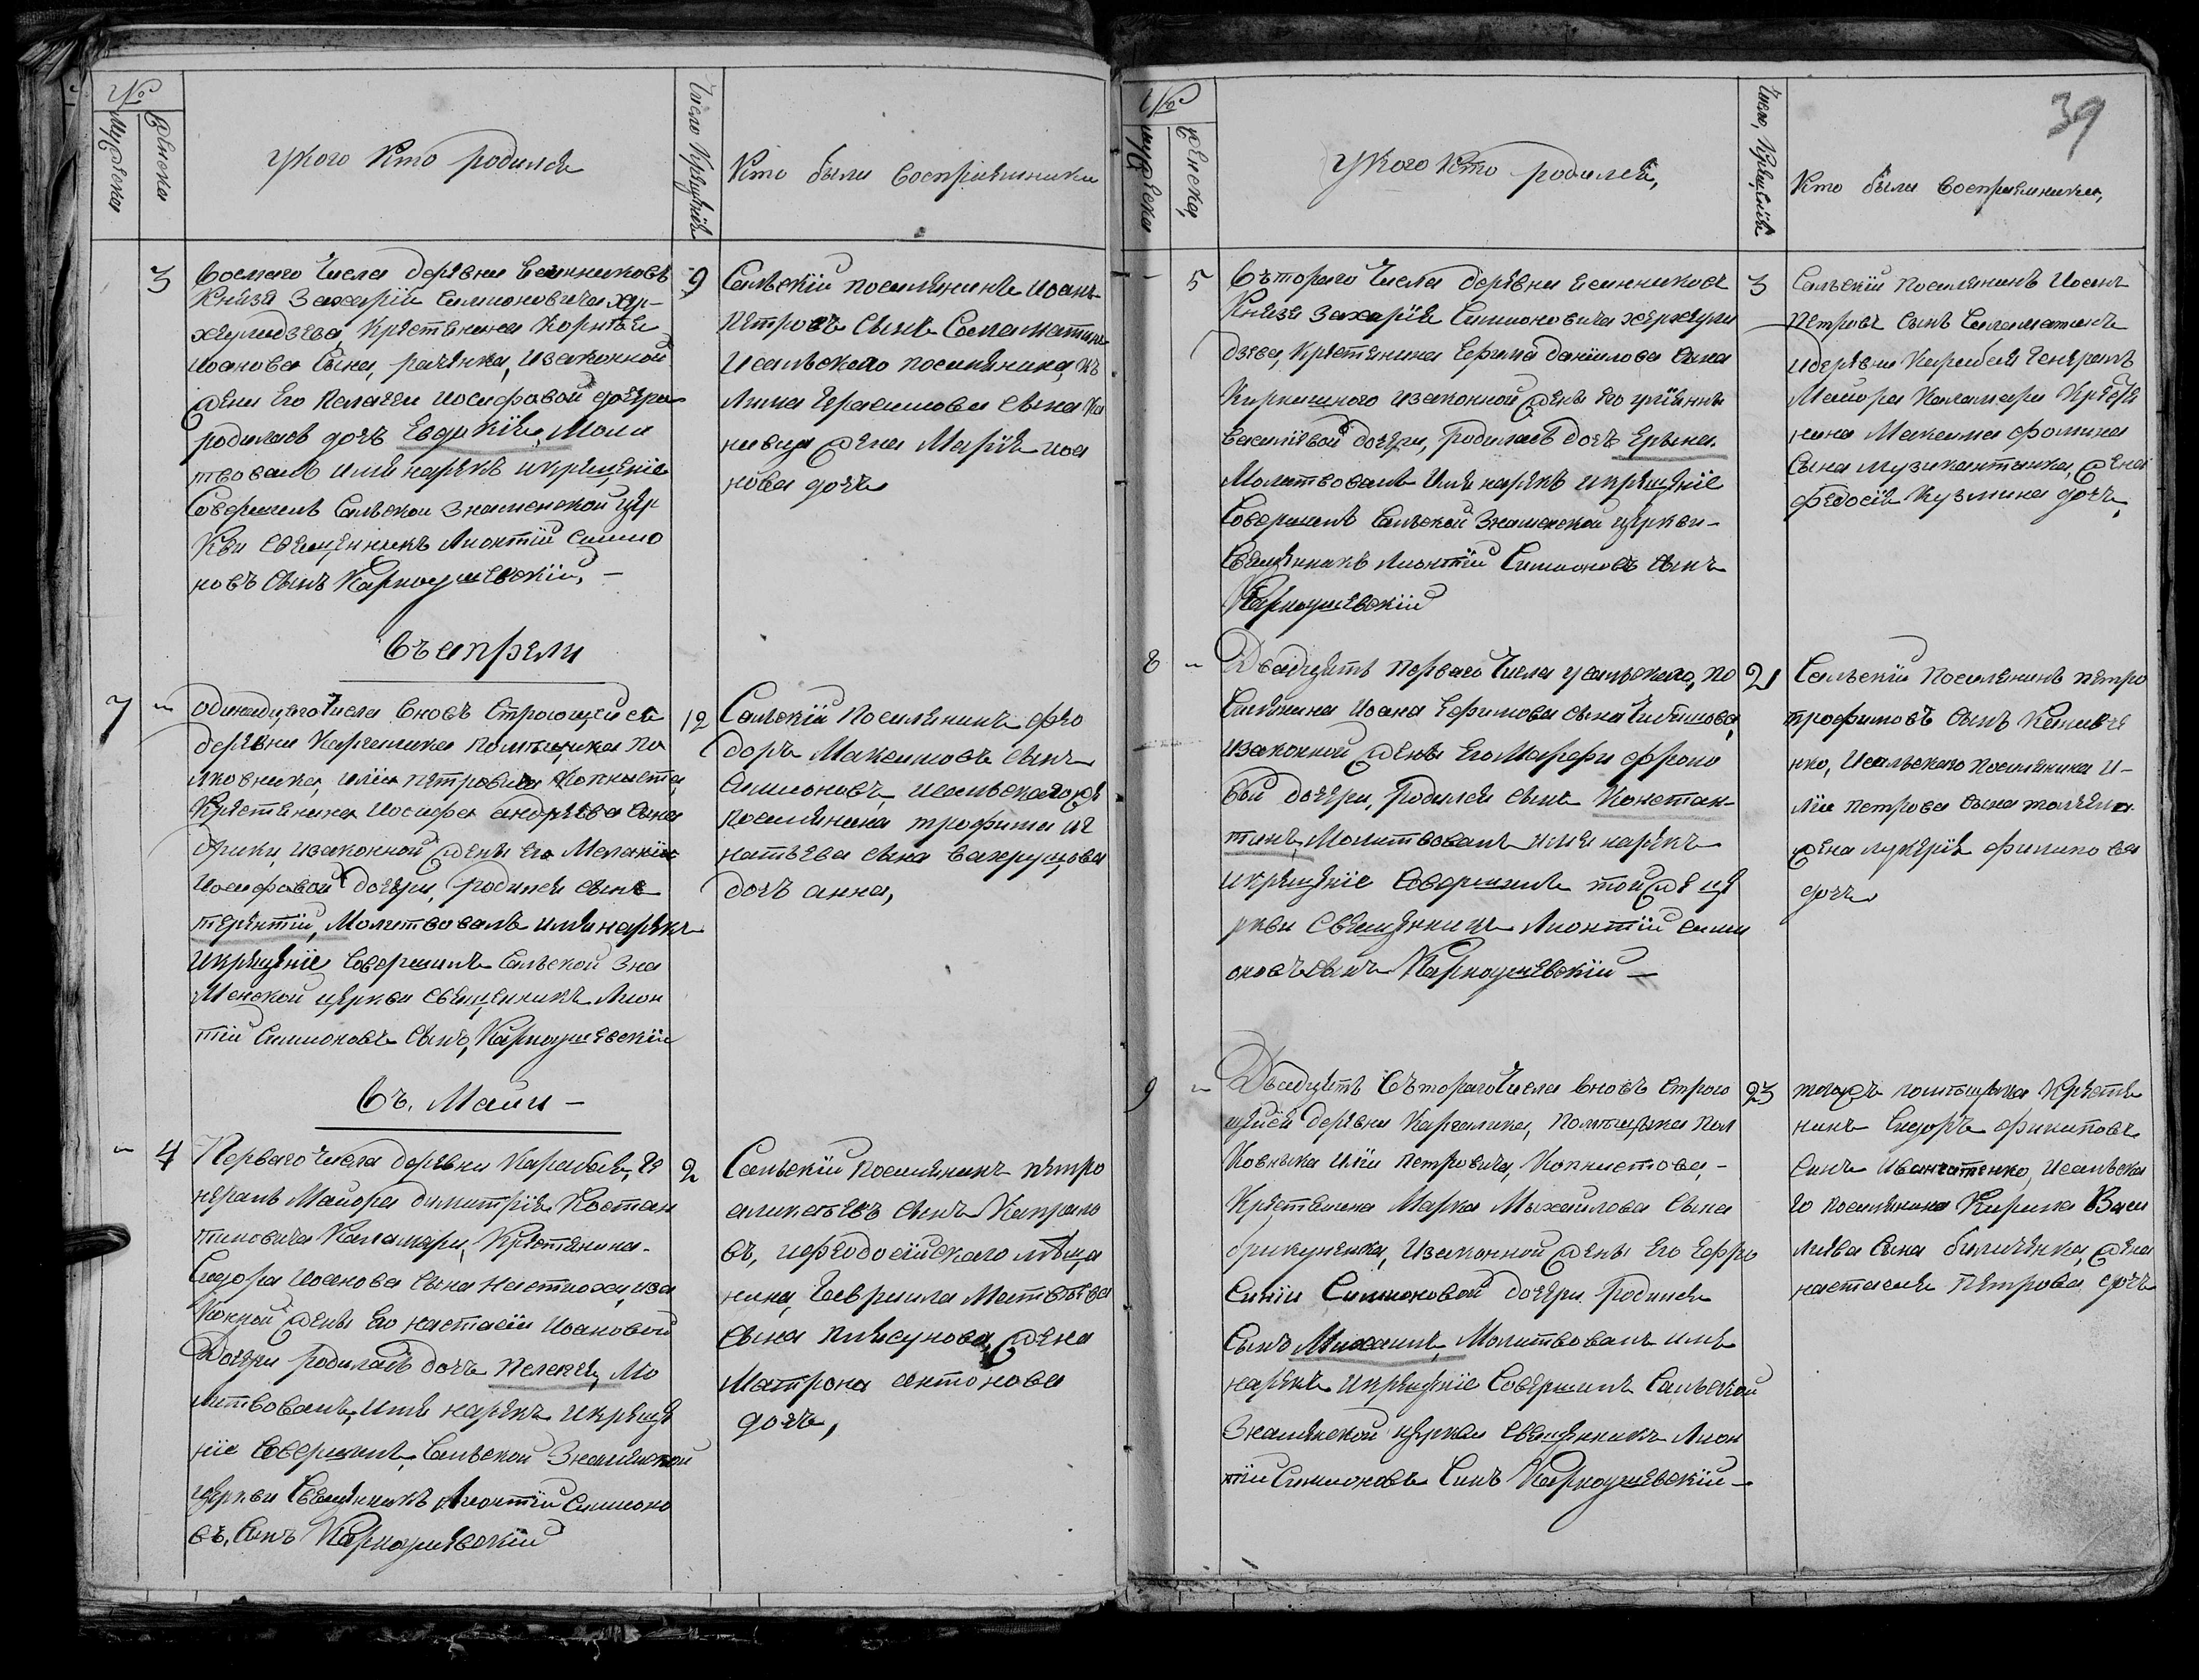 №
Мужеска
Женска
у кого кто родился
Число крещенія
Кто были восприемники
3
Восмаго числа деревни Есинниковъ
Князя Захарія Симионовича хер-
хеулидзева, крестянина Корнѣя
Иоанова сына, изаконной
жены его Пелагеи Иосифовой дочери
родилась дочь Евдокія, Моли
твовалъ имя нарекъ икрещеніе
Совершилъ Сальской Знаменской цер
кви священникъ Лионтій Симио
новъ сынъ Карнаушевскій, -
9
Сальскій поселянинъ Иоанъ
Петровъ сынъ Саламатинъ
Исальскаго поселянина
Герасимова сына
жена Марія Иоа
нова дочь
Въ апрели
7
одинадцатого числа вновь строющейся
деревни Карчалика помещика по
лковника, Иліи Петровича Копниста,
Крестянина Иосифа андреева сына
дрики, изаконной жены его Меланіи
Иосифовой дочери, родился сынъ
терентій, Молитвовалъ имя нарекъ
икрещеніе совершилъ Сальской Зна
Менской церкви священникъ Лион
тій Симионовъ сынъ, Карнаушевскій
12
Сальскій поселянинъ фио
доръ Максимовъ сынъ
Симионовъ, исальскагоже
поселянина трофима иг
натьева сына вахрушова
дочь анна,
Въ. Маии -
4
Перваго числа деревни Карабая, ге
нералъ Маиора димитрія Костан
тиновича Каламары, Крестянина.
Сидора Иоанова сына Настюха, иза
конной жены его настасіи Иоановой
Дочери родилась дочь пелагея, Мо
литвовалъ, имя нарекъ икреще
ніе совершилъ, Сальской Знаменской
церкви священникъ Лионтій Симионо
въ, сынъ Карнаушевскій
2
Сальскій поселянинъ петро
сынъ Капрало
въ, ифеодосійскаго мѣща
нина, Гавриила Матвѣева
сына плясунова, жена
Матрона антонова
дочь,
39
№
мужеска
женска,
У кого кто родился,
Число, крещенія
Кто были восприемники,
5
Вътораго числа деревни Есинниковъ
Князя Захарія Симионовича херхеули
дзева, крестянина Ефима данилова сына
изаконной жены его уліянны
василевой дочери, родилась дочь Ерына.
Молитвовалъ имя нарекъ икрещеніе
Совершилъ Сальской Знаменской церкви -
Священникъ Лионтій Симионовъ сынъ
Карнаушевскій
3
Сальскій поселянинъ Иоанъ
Петровъ сынъ Саламатинъ
идеревни Карабая генералъ
Маиора Каламары Крестя
нина Максима фомина
Сына музикантенка, жена
федосія Кузмина дочь,
8
Двадцать перваго числа усальскаго, по
Селянина Иоана Ефимова сына Чибишова,
изаконной жены его Марфи ефроло
вой дочери, родился сынъ Констан-
тинъ, Молитвовалъ имя нарекъ
икрещеніе совершилъ тойже це
ркви священникъ Лионтій сими
оновъ сынъ Карнаушевскій -
21
Сальскій поселянинъ петро
трофимовъ сынъ
нко, Исальскаго поселянина и-
ліи петрова сына
жена лукерія филипова
дочь
9
Двадцать вътораго числа вновь строю
щейся деревни Карчалика, помещика пол
Ковника Иліи Петровича, Копнистова, -
Крестянина Марка Михаилова сына
изаконной жены его Ефро
синіи Симионовой дочери. Родился
Сынъ Михаилъ, Молитвовалъ имя
нарекъ икрещеніе Совершилъ Сальской
Знаменской церкви священникъ Лион
тій Симионовъ Синъ Карнаушевскій -
23
тогожъ помещика, Крестя
нинъ Сидоръ филиповъ
Синъ исальска
го поселянина Кирила Васи
лиева сына биличенка, жена
настасия Петрова дочь